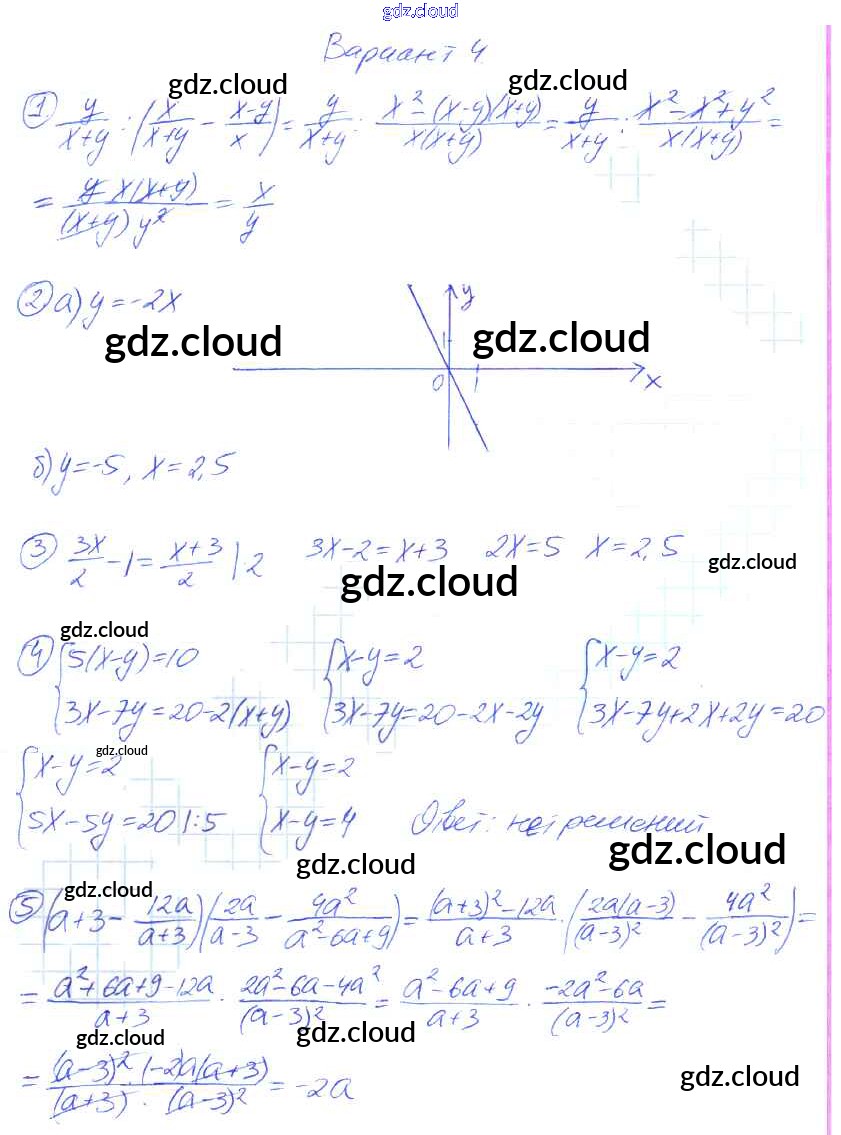 gdz.cloud
Вариант 4
gdz.cloud gdz.cloud
① y/(x+y) : (x/(x+y) - (x-y)/x) = y/(x+y) : (x²-(x-y)(x+y))/(x(x+y)) = y/(x+y) : (x²-x²+y²)/(x(x+y)) =
= (y x(x+y))/((x+y) y²) = x/y
② а) y=-2x
y
gdz.cloud gdz.cloud
1
0 1 x
б) y=-5, x=2,5
③ 3x/2 - 1 = (x+3)/2 |·2 3x-2=x+3 2x=5 x=2,5
gdz.cloud
gdz.cloud
gdz.cloud
④ { 5(x-y)=10 { x-y=2 { x-y=2
3x-7y=20-2(x+y) 3x-7y=20-2x-2y 3x-7y+2x+2y=20
gdz.cloud
{ x-y=2 { x-y=2
5x-5y=20 |:5 x-y=4 Ответ: нет решений
gdz.cloud
gdz.cloud
gdz.cloud
⑤ (a+3 - 12a/(a+3))(2a/(a-3) - 4a²/(a²-6a+9)) = ((a+3)²-12a)/(a+3) · (2a(a-3)/(a-3)² - 4a²/(a-3)²) =
= (a²+6a+9-12a)/(a+3) · (2a²-6a-4a²)/(a-3)² = (a²-6a+9)/(a+3) · (-2a²-6a)/(a-3)² =
gdz.cloud gdz.cloud
= ((a-3)²·(-2)a(a+3))/((a+3)·(a-3)²) = -2a
gdz.cloud